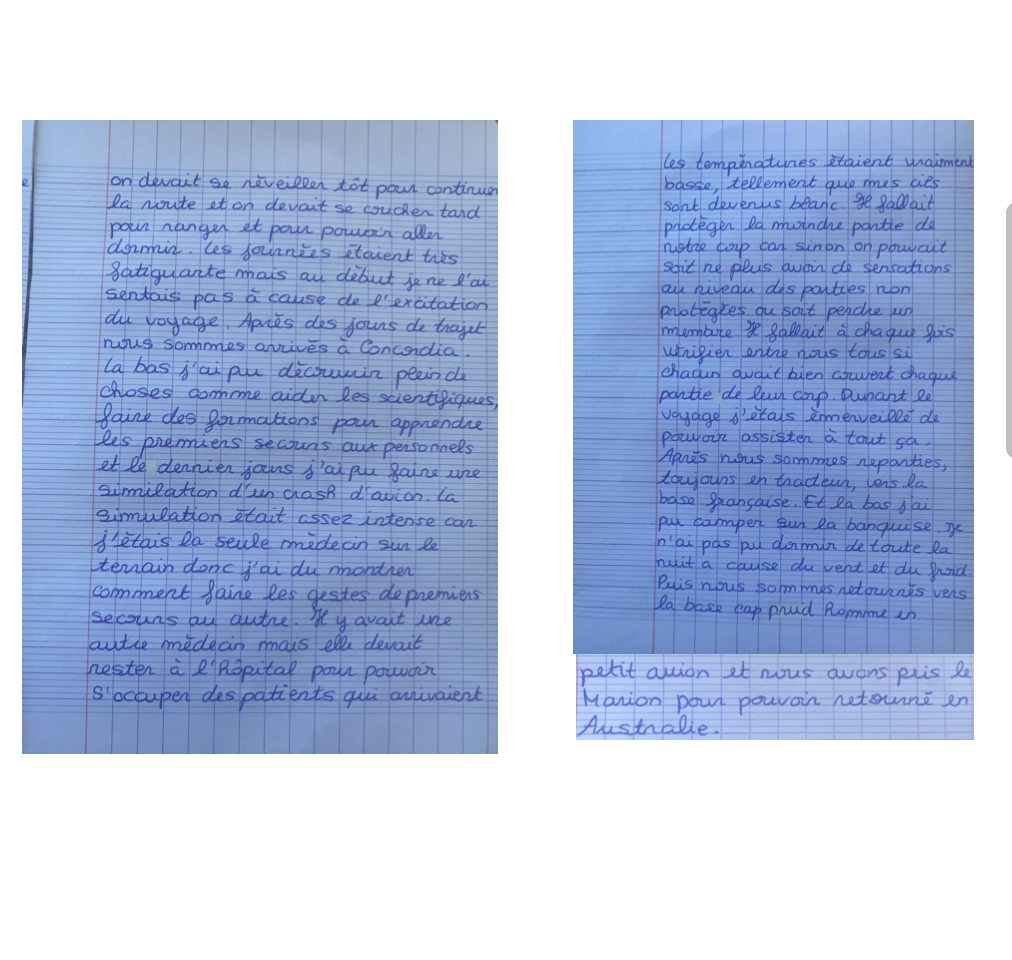 on devait se réveiller tôt pour continuer
la route et on devait se coucher tard
pour ranger et pour pouvoir aller
dormir. Les journées étaient très
fatiguante mais au début je ne l'ai
sentais pas à cause de l'excitation
du voyage. Après des jours de trajet
nous sommes arrivés à Concordia.
La bas j'ai pu découvrir plein de
choses comme aider les scientifiques,
faire des formations pour apprendre
les premiers secours aux personnels
et le dernier jours j'ai pu faire une
similation d'un crash d'avion. La
simulation était assez intense car
j'étais la seule médecin sur le
terrain donc j'ai du montrer
comment faire les gestes de premiers
secours au autre. Il y avait une
autre médecin mais elle devait
rester à l'hôpital pour pouvoir
s'occuper des patients qui arrivaient
Les températures étaient vraiment
basse, tellement que mes cils
sont devenus blanc. Il fallait
protéger la moindre partie de
notre corp car sinon on pouvait
soit ne plus avoir de sensations
au niveau des parties non
protégées ou soit perdre un
membre Il fallait à chaque fois
vérifier entre nous tous si
chacun avait bien couvert chaque
partie de leur corp. Durant le
voyage j'étais émmerveillé de
pouvoir assister à tout ça.
Après nous sommes reparties,
toujours en tracteur, vers la
base française. Et là bas j'ai
pu camper sur la banquise. Je
n'ai pas pu dormir de toute la
nuit a cause du vent et du froid.
Puis nous sommes retournés vers
la base cap prud Homme en
petit avion et nous avons pris le
Marion pour pouvoir retourné en
Australie.